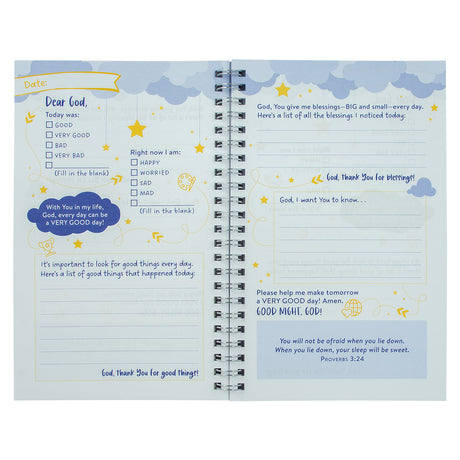 Date:
Dear God,
Today was:
GOOD
VERY GOOD
BAD
VERY BAD
(Fill in the blank)
Right now I am:
HAPPY
WORRIED
SAD
MAD
(Fill in the blank)
With You in my life,
God, every day can be
a VERY GOOD day!
It's important to look for good things every day.
Here's a list of good things that happened today:
God, thank You for good things!
God, You give me blessings—BIG and small—every day.
Here's a list of all the blessings I noticed today:
God, thank You for blessings!
God, I want You to know . . .
Please help me make tomorrow
a VERY GOOD day! Amen.
GOOD NIGHT, GOD!
You will not be afraid when you lie down.
When you lie down, your sleep will be sweet.
PROVERBS 3:24